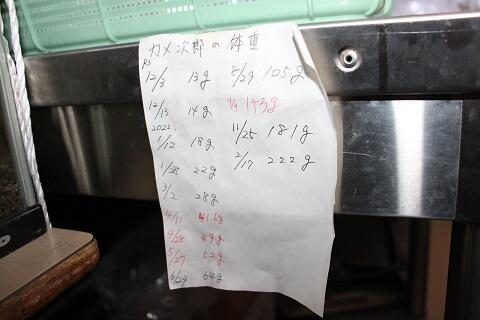 カメ次郎の体重
R3
12/3 13g
12/13 14g
2022.
1/12 18g
1/28 22g
3/2 28g
4/11 41.6g
4/28 49g
5/27 52g
6/24 64g
8/29 105g
143g
11/25 181g
2/17 222g